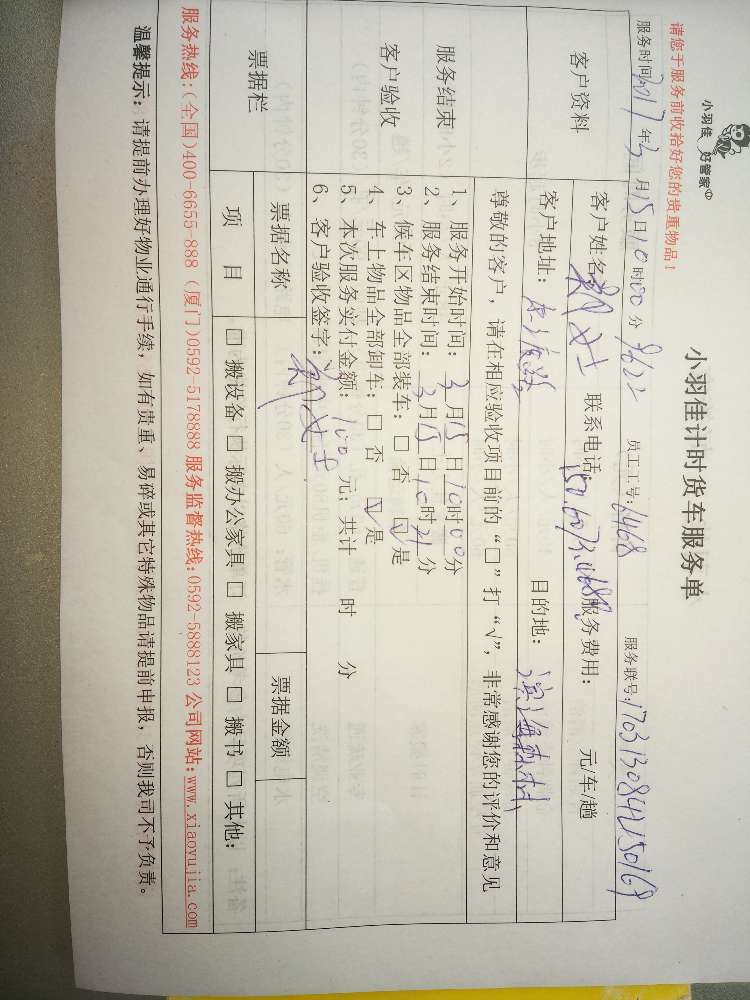 小羽佳 好管家
小羽佳计时货车服务单
请您于服务前收拾好您的贵重物品！
服务时间2017年3月15日10时00分 9622 员工工号:1468 服务联号:
客户资料 客户姓名: 女士 联系电话: 服务费用: 元/车/趟
客户地址: 目的地:
尊敬的客户，请在相应验收项目前的“□”打“√”，非常感谢您的评价和意见
服务结束
客户验收
1、服务开始时间：3月15日10时00分
2、服务结束时间：3月15日10时21分
3、候车区物品全部装车：□ 否 ☑是
4、车上物品全部卸车：□ 否 ☑是
5、本次服务实付金额：100元；共计 时 分
6、客户验收签字： 女士
票据栏 票据名称 票据金额
项 目 □ 搬设备 □ 搬办公家具 □ 搬家具 □ 搬书 □ 其他：
服务热线:(全国)400-6655-888 (厦门)0592-5178888 服务监督热线:0592-5888123 公司网站:www.xiaoyujia.com
温馨提示：请提前办理好物业通行手续，如有贵重、易碎或其它特殊物品请提前申报，否则我司不予负责。